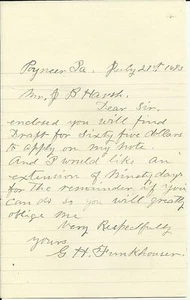 Pioneer Ia. July 21st 1883
Mr. J B Harsh.
Dear Sir,
enclosed you will find
Draft for Sixty five Dollars
to apply on my note
And I would like an
extension of Ninety days
for the remainder if you
can do so you will greatly
oblige me
Very Respectfully
yours
G H Funkhouser.